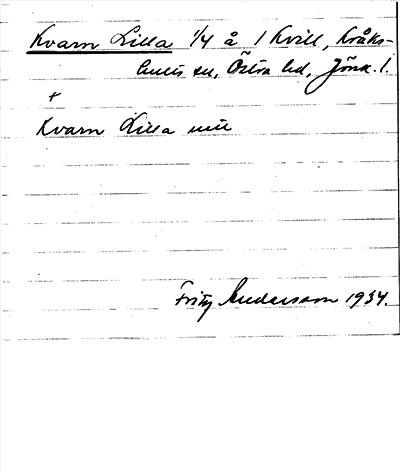 Kvarn Lilla 1/4 å 1 Kvill, Kråks-
hults sn, Östra hd, Jönk. l.
+
Kvarn Lilla mtl
Fritz Andersson 1934.